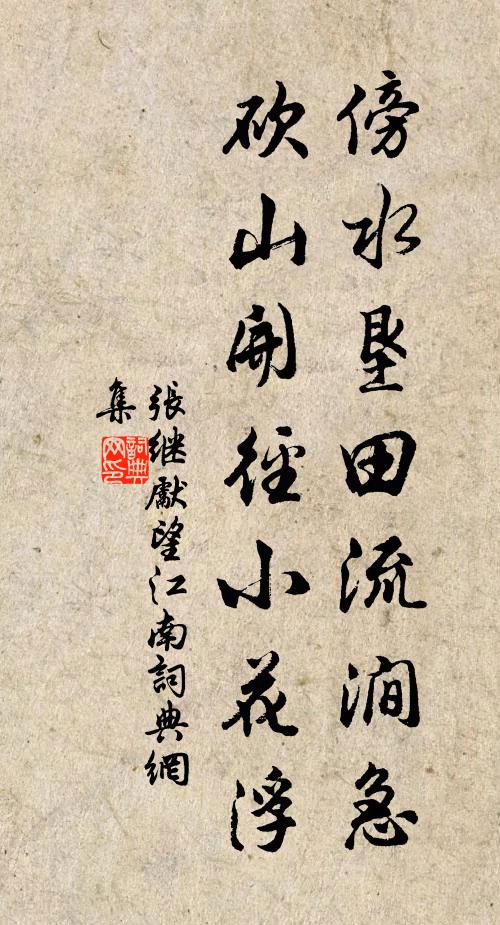 傍水垦田流澗急
砍山開徑小花浮
張继獻望江南詞典網
集
詞典
网印